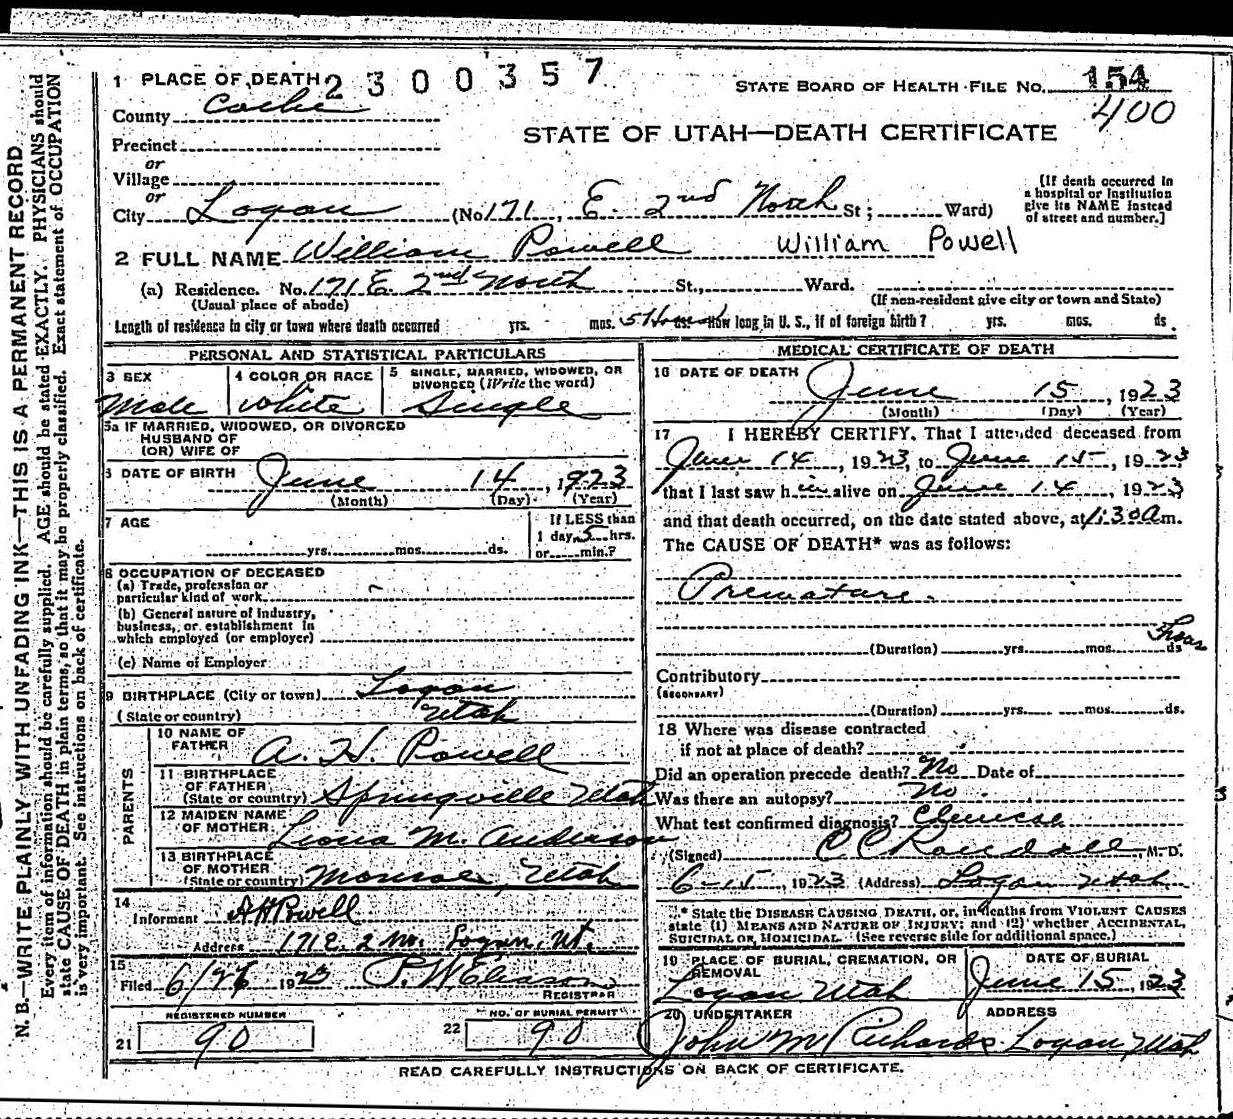 N. B.—WRITE PLAINLY WITH UNFADING INK—THIS IS A PERMANENT RECORD
Every item of information should be carefully supplied. AGE should be stated EXACTLY. PHYSICIANS should
state CAUSE OF DEATH in plain terms, so that it may be properly classified. Exact statement of OCCUPATION
is very important. See instructions on back of certificate.
1 PLACE OF DEATH 2300357
STATE BOARD OF HEALTH FILE No. 154
400
County Cache
STATE OF UTAH—DEATH CERTIFICATE
Precinct
or
Village
or
City Logan (No 171, E. 2nd North St; Ward)
[If death occurred in
a hospital or institution
give its NAME instead
of street and number.]
2 FULL NAME William Powell William Powell
(a) Residence. No. 171 E 2nd North St., Ward.
(Usual place of abode) (If non-resident give city or town and State)
Length of residence in city or town where death occurred yrs. mos. 5 Hours ds. How long in U. S., if of foreign birth? yrs. mos. ds.
PERSONAL AND STATISTICAL PARTICULARS
3 SEX 4 COLOR OR RACE 5 SINGLE, MARRIED, WIDOWED, OR
DIVORCED (Write the word)
Male White Single
5a IF MARRIED, WIDOWED, OR DIVORCED
HUSBAND OF
(OR) WIFE OF
6 DATE OF BIRTH June 14, 1923
(Month) (Day) (Year)
7 AGE yrs. mos. ds.
If LESS than
1 day, 5 hrs.
or min.?
8 OCCUPATION OF DECEASED
(a) Trade, profession or
particular kind of work
(b) General nature of industry,
business, or establishment in
which employed (or employer)
(c) Name of Employer
9 BIRTHPLACE (City or town) Logan
(State or country) Utah
PARENTS
10 NAME OF
FATHER A. H. Powell
11 BIRTHPLACE
OF FATHER
(State or country) Springville Utah
12 MAIDEN NAME
OF MOTHER Leona M. Anderson
13 BIRTHPLACE
OF MOTHER
(State or country) Monroe, Utah
14
Informant AH Powell
Address 171 E. 2 No. Logan, Ut.
15
Filed 6/ 1923
REGISTRAR
REGISTERED NUMBER
21 90
NO. OF BURIAL PERMIT
22 90
MEDICAL CERTIFICATE OF DEATH
16 DATE OF DEATH
June 15, 1923
(Month) (Day) (Year)
17 I HEREBY CERTIFY, That I attended deceased from
June 14, 1923, to June 15, 1923
that I last saw him alive on June 14, 1923
and that death occurred, on the date stated above, at 1:30 a m.
The CAUSE OF DEATH* was as follows:
Premature.
(Duration) yrs. mos. ds.
Contributory
(SECONDARY)
(Duration) yrs. mos. ds.
18 Where was disease contracted
if not at place of death?
Did an operation precede death? No Date of
Was there an autopsy? No.
What test confirmed diagnosis?
(Signed) C C Randall, M. D.
6-15, 1923 (Address) Logan Utah
* State the DISEASE CAUSING DEATH, or, in deaths from VIOLENT CAUSES
state (1) MEANS AND NATURE OF INJURY; and (2) whether ACCIDENTAL,
SUICIDAL OR HOMICIDAL. (See reverse side for additional space.)
19 PLACE OF BURIAL, CREMATION, OR
REMOVAL
Logan Utah
DATE OF BURIAL
June 15, 1923
20 UNDERTAKER ADDRESS
John M Richards Logan Utah
READ CAREFULLY INSTRUCTIONS ON BACK OF CERTIFICATE.